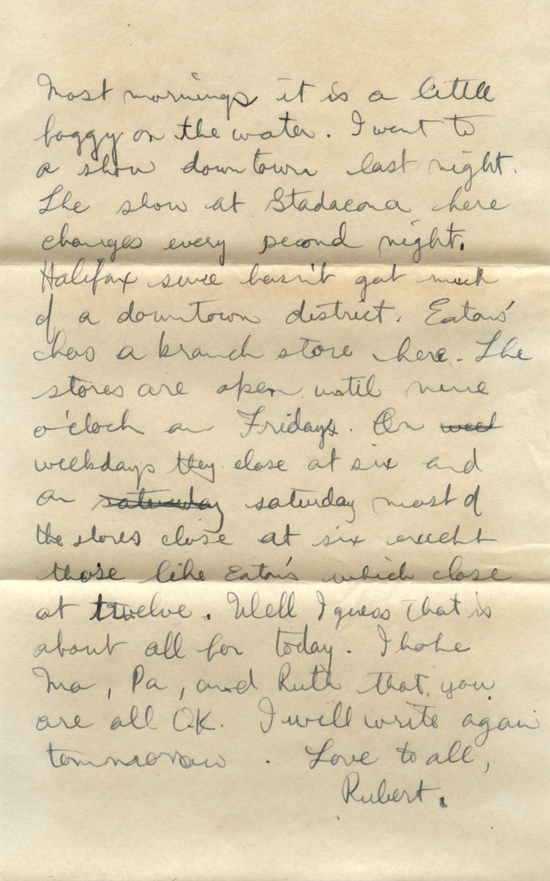 Most mornings it is a little
foggy on the water. I went to
a show downtown last night.
The show at Stadacona here
changes every second night.
Halifax sure hasn't got much
of a downtown district. Eatons'
has a branch store here. The
stores are open until nine
o'clock on Fridays. On week
weekdays they close at six and
on saturday saturday most of
the stores close at six except
those like Eaton's which close
at twelve. Well I guess that is
about all for today. I hope
Ma, Pa, and Ruth that you
are all OK. I will write again
tommorow. Love to all,
Rubert.